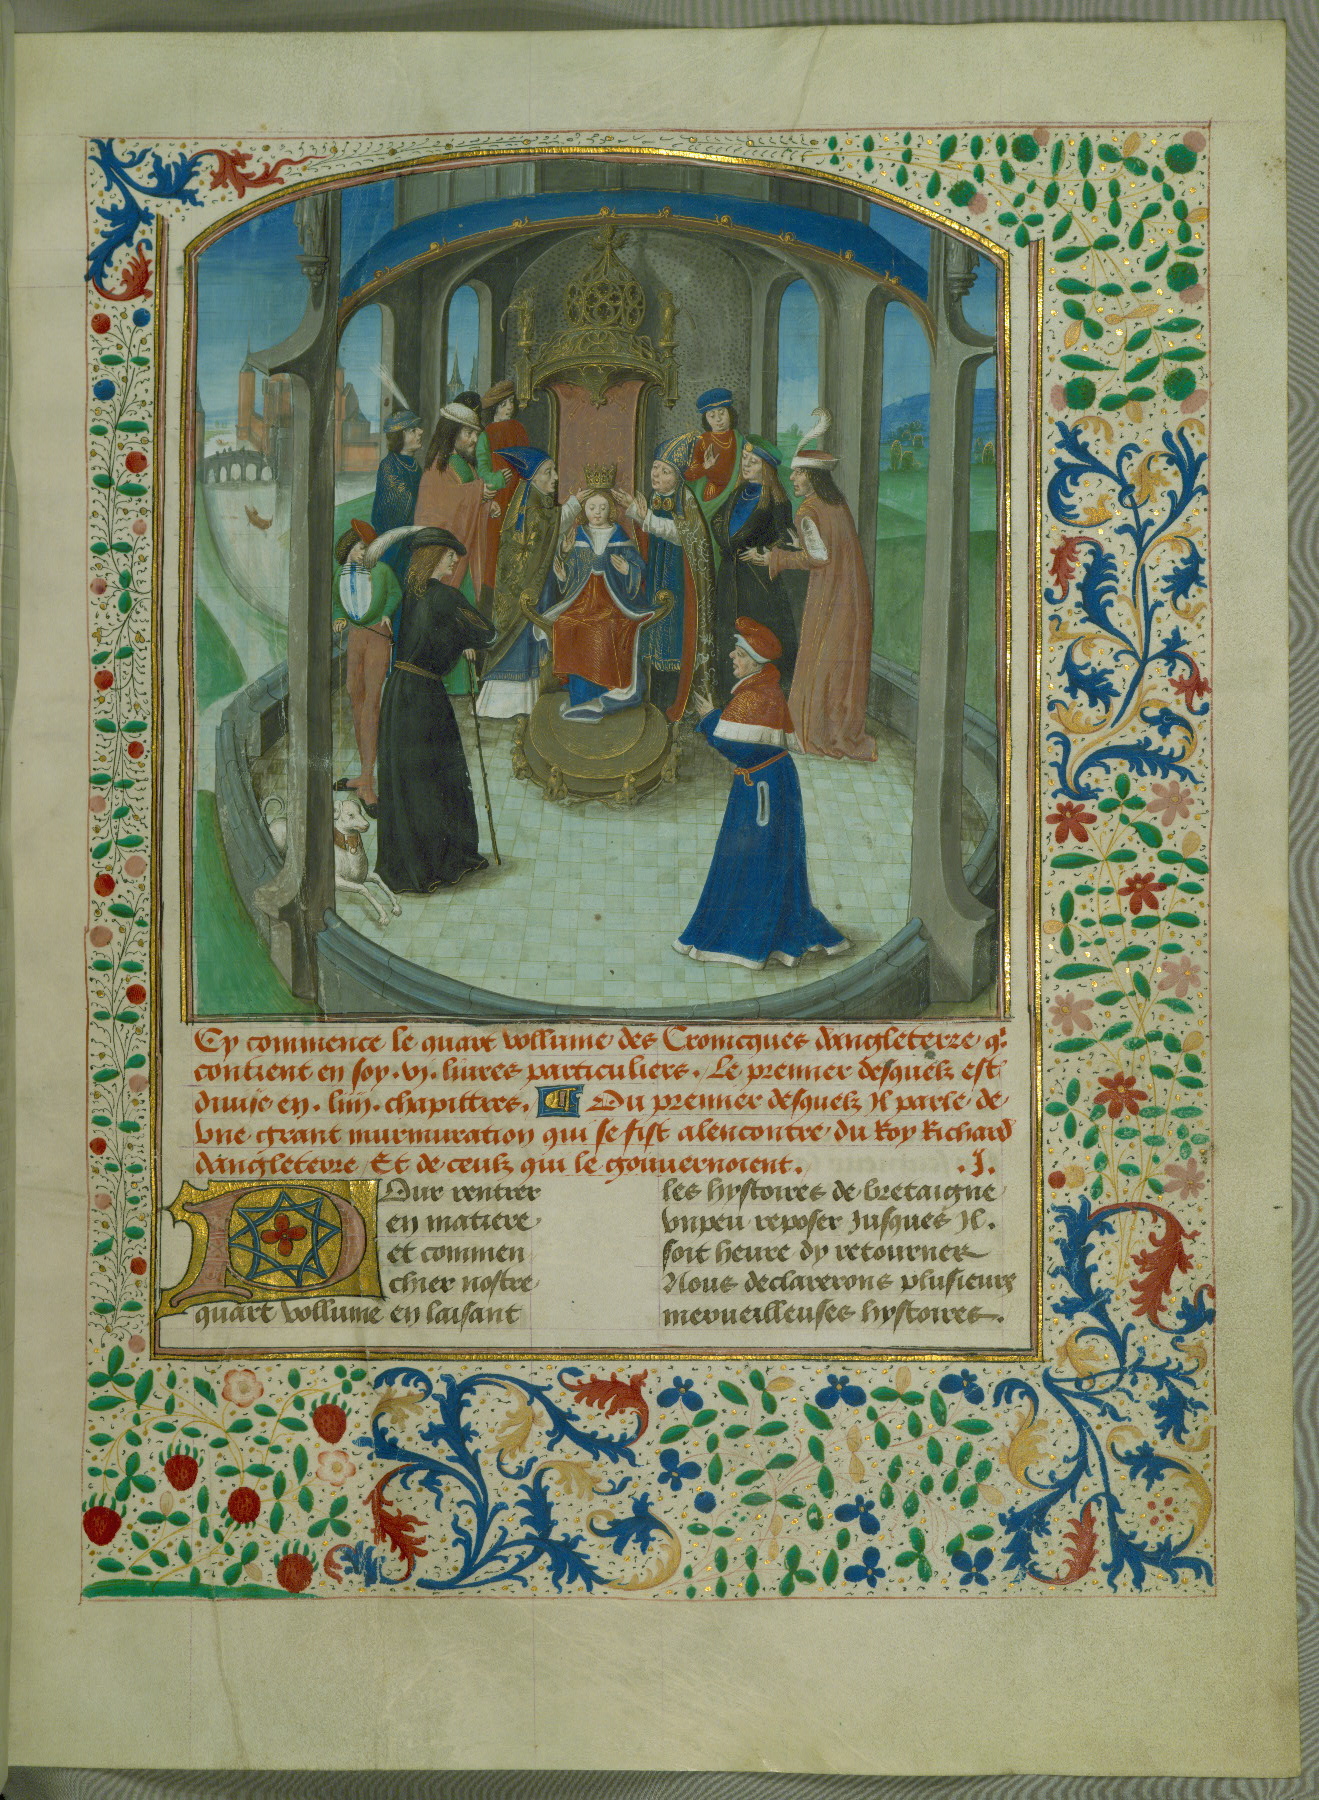 Cy commence le quart vollume des Cronicques dangleterre q̄
contient en soy . vj . liures particuliers . Le premier desquelz est
diuise en . liiij . chapittres . ¶ Du premier desquelz Il parle de
vne grant murmuration qui se fist alencontre du Roy Richard
dangleterre Et de ceulz qui le gouuernoient . .J.
Pour rentrer
en matiere
et commen
chier nostre
quart vollume en laisant
les hystoires de bretaigne
vnpeu reposer Jusques Il .
soit heure dy retourner
Nous declarerons plusieurs
merueilleuses hystoires .